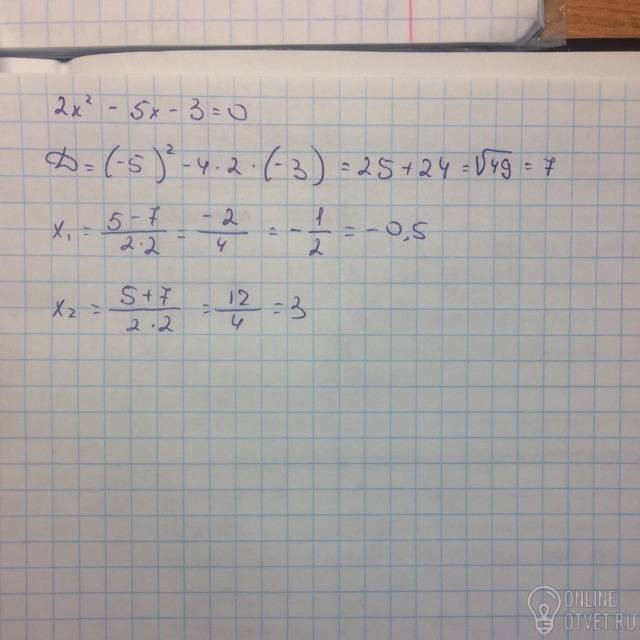 2x² - 5x - 3 = 0
D = (-5)² - 4 · 2 · (-3) = 25 + 24 = √49 = 7
x₁ = (5 - 7)/(2 · 2) = -2/4 = -1/2 = -0,5
x₂ = (5 + 7)/(2 · 2) = 12/4 = 3
ONLINE
OTVET.RU